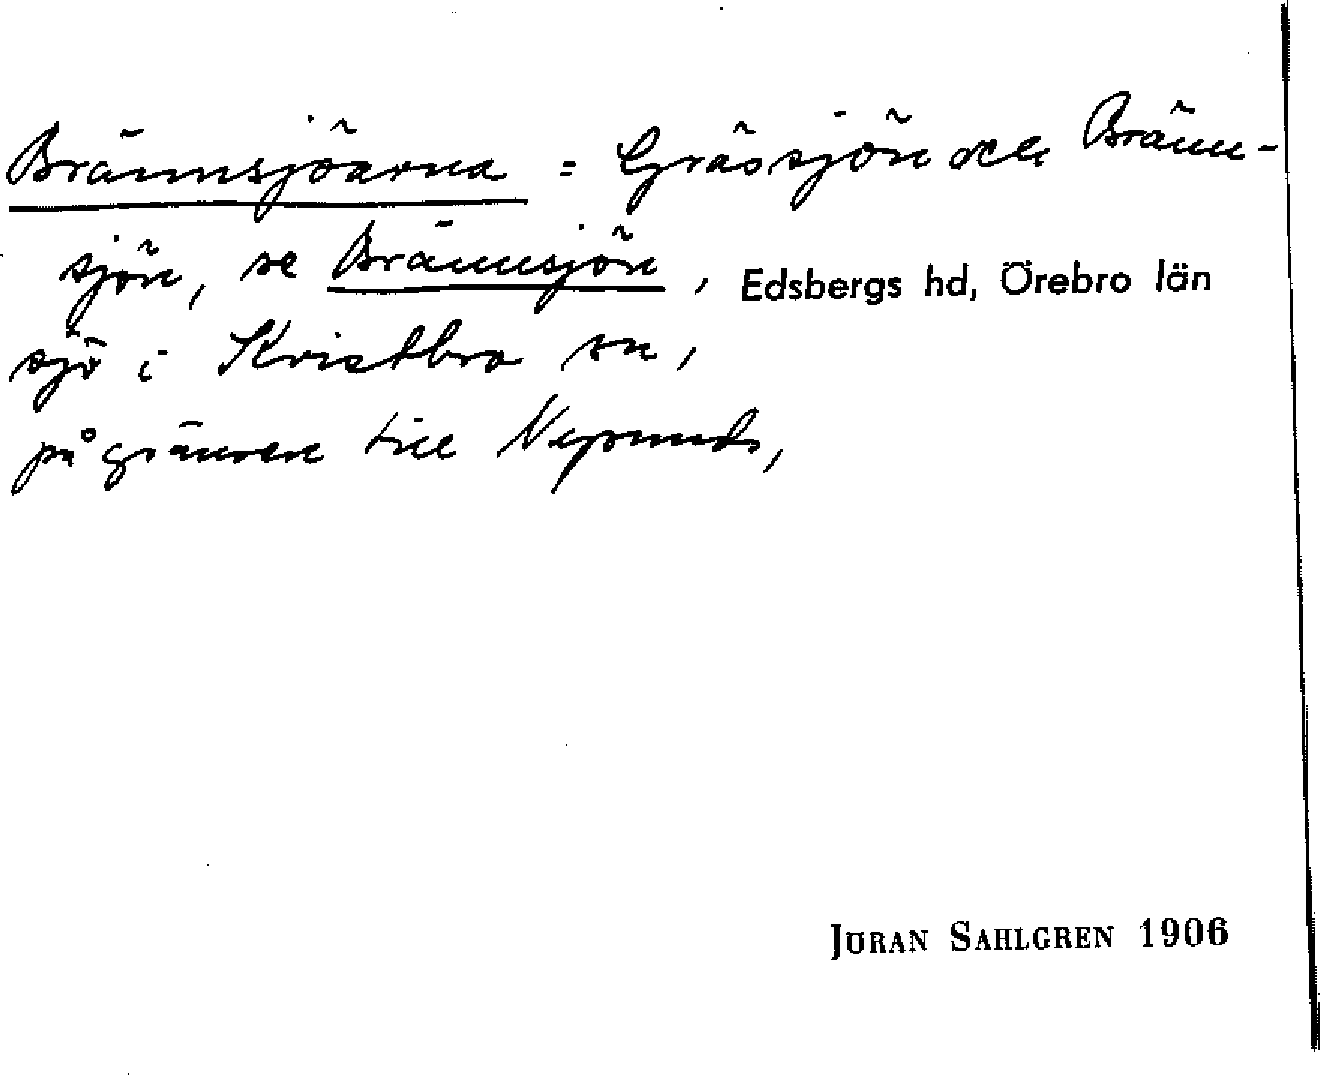 Brännsjöarna = Grässjön och Bränn-
sjön, se Brännsjön, Edsbergs hd, Örebro län
sjö i Kvistbro sn,
på gränsen till Nysunds,
JÖRAN SAHLGREN 1906